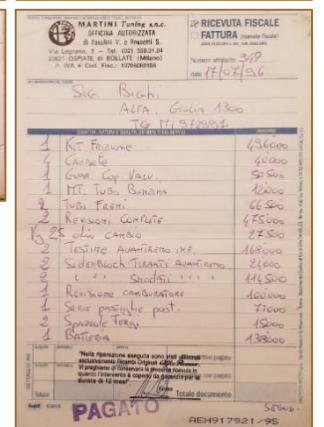 MARTINI Tuning s.n.c.
OFFICINA AUTORIZZATA
di Fasolini V. e Proserti S.
Via Legnano, 3 - Tel. (02)
20021 OSPIATE di BOLLATE (Milano)
P. IVA e Cod. Fisc.:
RICEVUTA FISCALE
FATTURA (ricevuta fiscale)
Numero attribuito 348
data 17/07/96
SIG. Bighi
ALFA. Giulia 1300
TG MI
1 KIT FRIZIONE 496000
4 CANDELE 40000
1 GUAR. COP. VALV. 50500
1 MT. TUBO BENZINA 12000
2 TUBI FRENI 66500
2 REVISIONI COMPLETE 475000
Kg 2,5 olio CAMBIO 27500
2 TESTINE AVANTRENO INF. 168000
2 SILENBLOCK TIRANTI AVANTRENO 21000
2 " " SNODATI " " " 114500
1 REVISIONE CARBURATORE 100000
1 SERIE pastiglie post. 71000
2 SPAZZOLE TERGI 15000
1 BATTERIA 138000
"Nella riparazione eseguita sono stati utilizzati
esclusivamente Ricambi Originali Alfa Romeo
Vi preghiamo di conservare la presente ricevuta in
quanto l'intervento è coperto da garanzia per la
durata di 12 mesi"
Totale documento
PAGATO
SEGUE
AEH917921/95